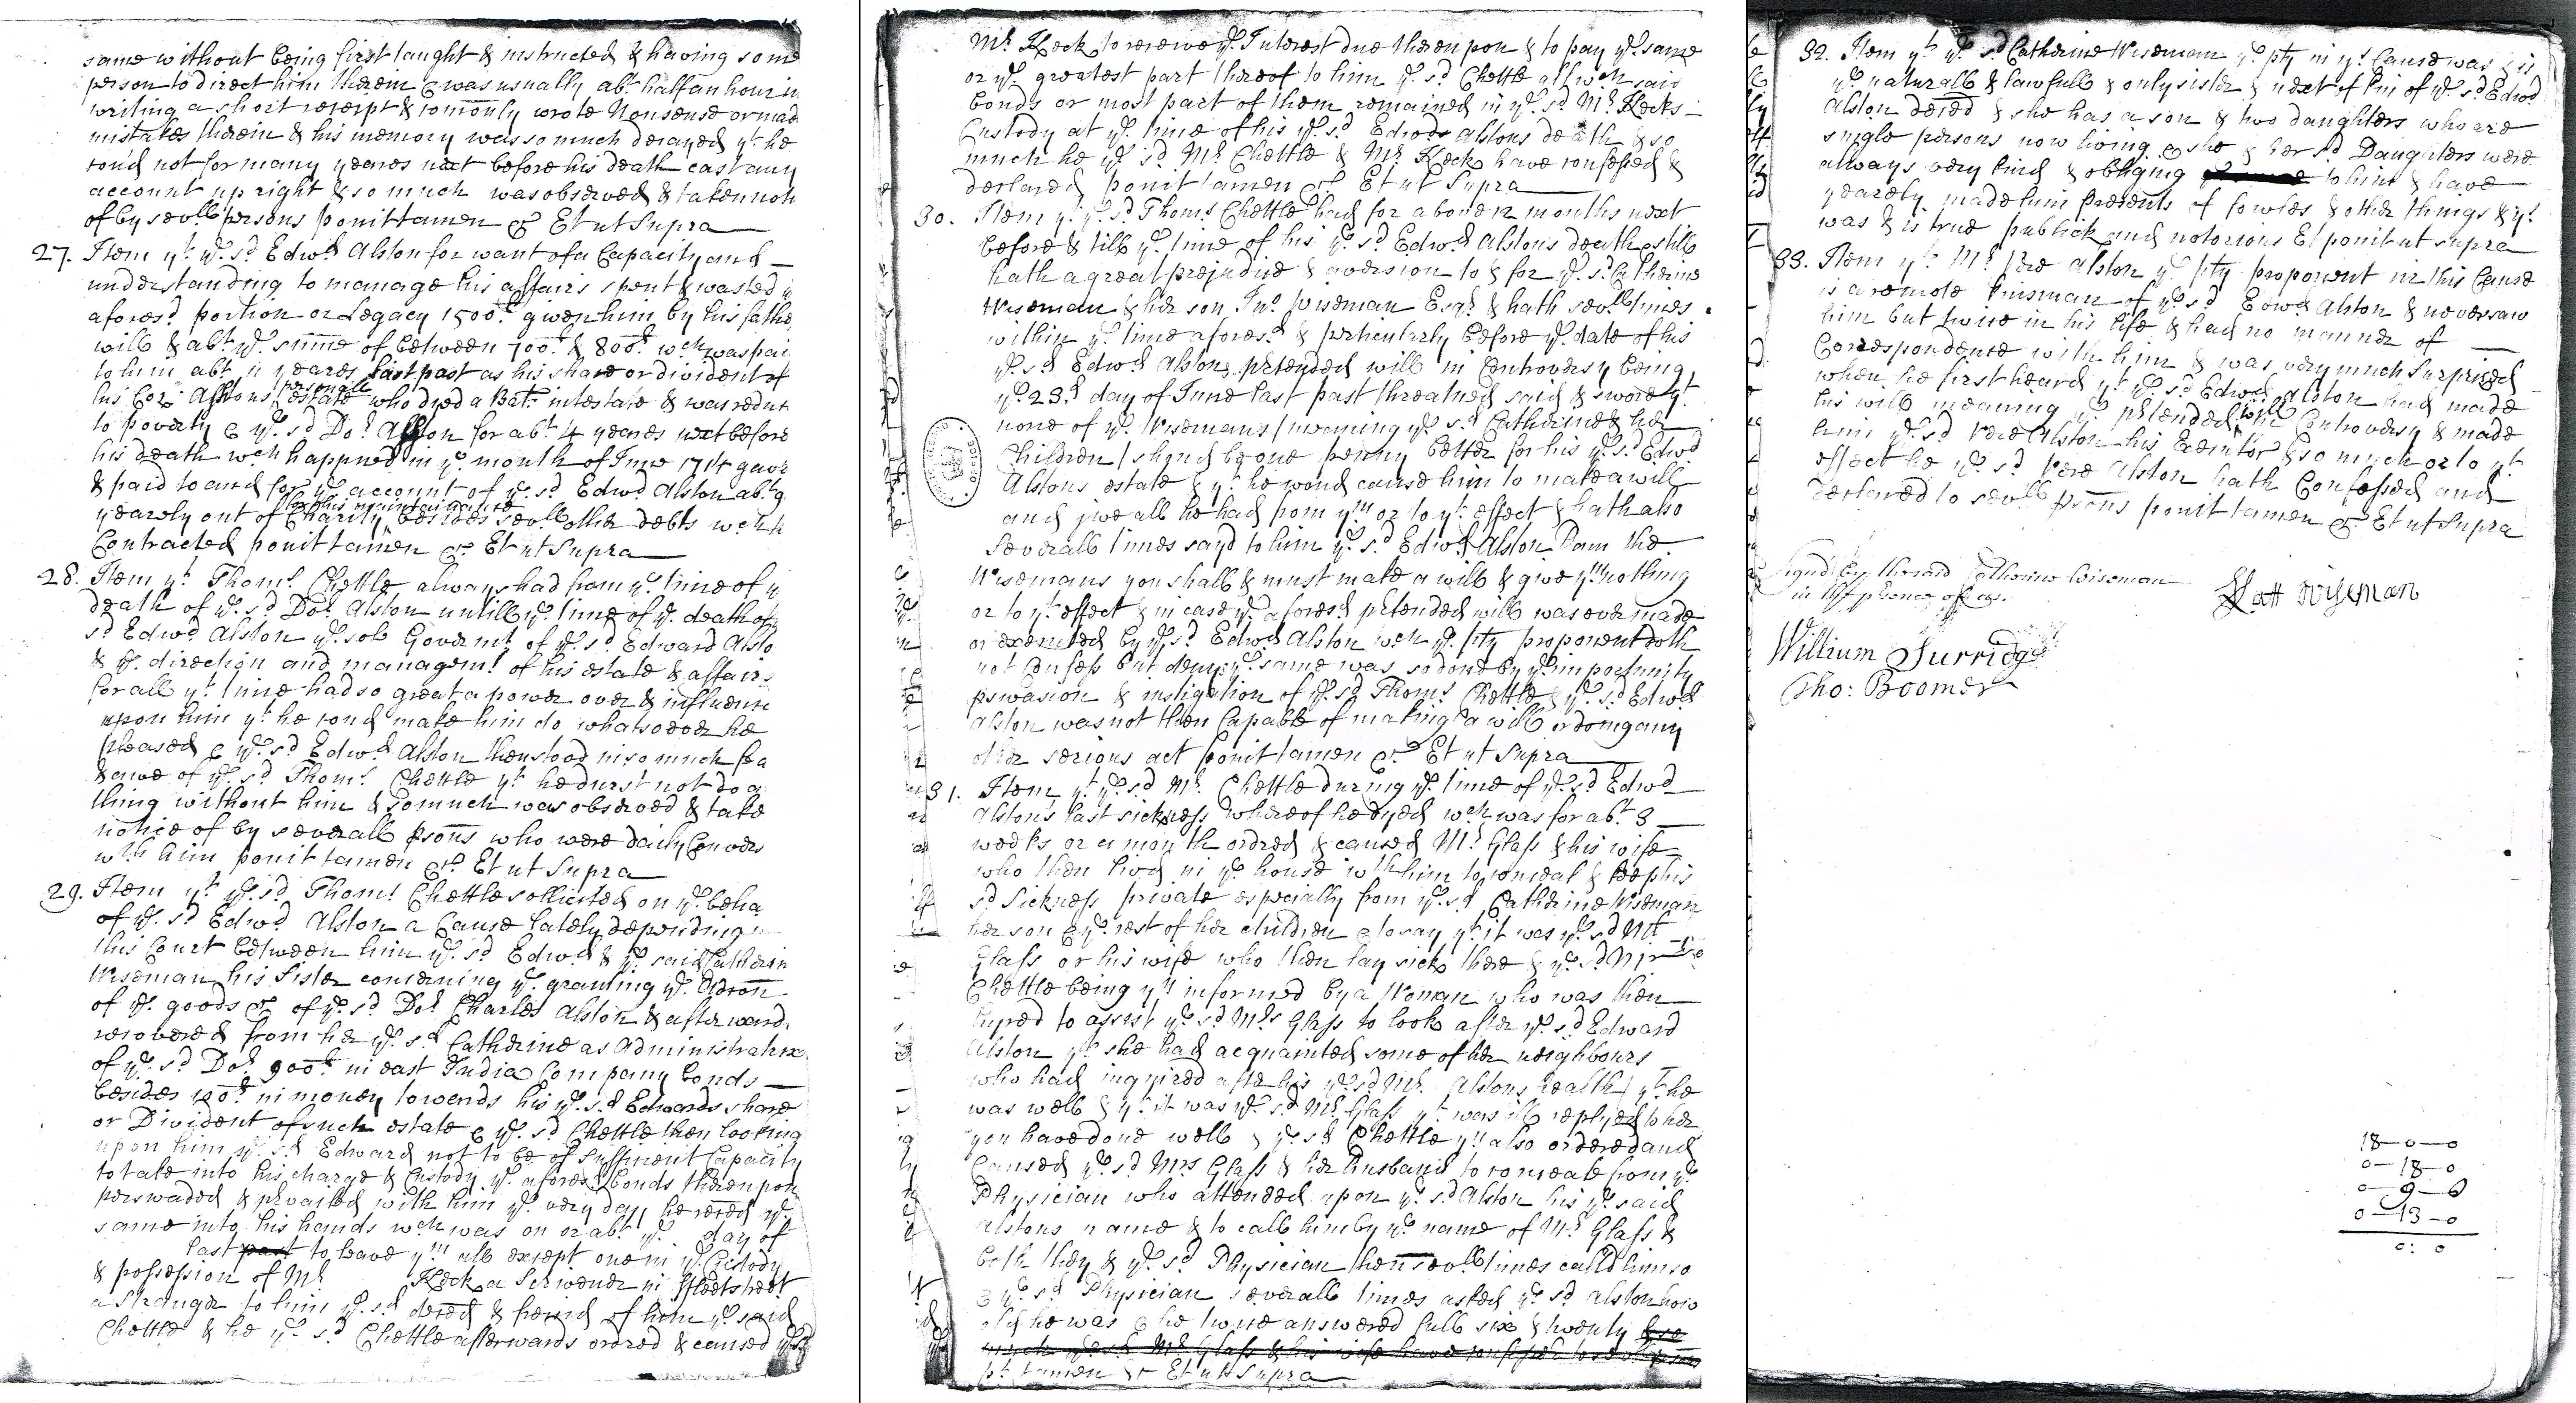 same without being first taught & instructed & having some
person to direct him therein & was usually abt. half an hour in
writing a short receipt & comonly wrote Nonsense or mad
mistakes therein & his memory was so much decayed yt. he
coud not for many yeares next before his death cast any
account up right & so much was observed & taken noti
of by sevll. persons ponit tamen &c. Et ut Supra
27. Item yt. ye. sd. Edwd. Alston for want of a Capacity and
understanding to manage his affairs spent & wasted ye
aforesd. portion or Legacy 1500£ given him by his fathe
will & abt. ye. summe of between 700£ & 800£ wch. was pai
to him abt. 11 yeares last past as his share or divident of
his Coz: Ashtons personall estate who dyed a Batr. intestate & was reduc
to poverty & ye. sd. Dor. Alston for abt. 4 yeares next before
his death wch happned in ye. month of June 1714 gave
& paid to and for ye. account of ye. sd. Edwd. Alston abt. 9
yearely out of Charity for his maintainance besides sevll. other debts wch h
Contracted ponit tamen &c. Et ut Supra
28. Item yt. Thoms. Chettle always had from ye. time of y
death of ye. sd. Dor. Alston untill ye. time of ye. death of
sd. Edwd. Alston ye. sole Governmt. of ye. sd. Edward Alsto
& ye. direction and managemt. of his estate & affairs
for all yt. time had so great a power over & influenc
upon him yt. he coud make him do whatsoever he
pleased & ye. sd. Edwd. Alston then stood in so much fea
& awe of ye. sd. Thoms. Chettle yt. he durst not do a
thing without him & so much was observed & take
notice of by severall psons who were daily Convers
wth him ponit tamen &c. Et ut Supra
29. Item yt. ye. sd. Thoms. Chettle sollicited on ye. beha
of ye. sd. Edwd. Alston a Cause lately depending
this Court between him ye. sd. Edwd. & ye. said Catherin
Wiseman his Sister concerning ye. granting ye. Admon
of ye. goods &c. of ye. sd. Dor. Charles Alston & afterwards
recovered from her ye. sd. Catherine as Administratrix
of ye. sd. Dor. 900£ in east India Company bonds
besides 100£ in money towerds his ye. sd. Edwards share
or Divident of such estate & ye. sd. Chettle then looking
upon him ye. sd. Edward not to be of sufficient Capacity
to take into his charge & Custody ye. aforesd. bonds thereupon
perswaded & prvailed with him ye. very day he reced ye.
same into his hands wch was on or abt. ye. day of
last past to leave ym. all except one in ye. Custody
& possession of Mr. Keck a Scrivener in Fleetstreet
a Stranger to him ye. sd. deced & freind of him ye. said
Chettle & he ye. sd. Chettle afterwards ordered & caused ye. sd
Mr. Keck to receive ye. Interest due thereupon & to pay ye. same
or ye. greatest part thereof to him ye. sd. Chettle all wch said
bonds or most part of them remained in ye. sd. Mr. Kecks
Custody at ye. time of his ye. sd. Edwds Alstons death & so
much he ye. sd. Mr. Chettle & Mr. Keck have confessed &
declared ponit tamen &c. Et ut Supra
30. Item yt. ye. sd. Thoms. Chettle had for above 12 months next
before & till ye. time of his ye. sd. Edwd. Alstons death & still
hath a great prejudice & aversion to & for ye. sd. Catherine
Wiseman & her son Jno. Wiseman Esqr. & hath sevll. times
within ye. time aforesd. & perticularly before ye. date of his
ye. sd. Edwd. Alstons pretended will in Controversy being
ye. 23d. day of June last past threatned said & swore yt.
none of ye. Wisemans / meaning ye. sd. Catherine & her
Children / shoud be one penny better for his ye. sd. Edwd
Alstons estate & yt. he woud cause him to make a will
and give all he had from ym. or to yt. effect & hath also
severall times sayd to him ye. sd. Edwd. Alston Dam the
Wisemans you shall & must make a will & give ym. nothing
or to yt. effect & in case ye. aforesd. pretended will was ever made
or executed by ye. sd. Edwd. Alston wch ye. pty proponent doth
not confess but deny ye. same was so done by ye. importunity
pswasion & instigation of ye. sd. Thoms. Chettle & ye. sd. Edwd
Alston was not then Capable of making a will or doing any
other serious act ponit tamen &c. Et ut Supra
31. Item yt. ye. sd. Mr. Chettle during ye. time of ye. sd. Edwd
Alstons last sickness whereof he dyed wch was for abt. 3
weeks or a month ordred & caused Mr. Glass & his wife
who then lived in ye. house wth him to conceal & keep his
sd. Sickness private especially from ye. sd. Catherine Wiseman
her son & ye. rest of her children & to say yt. it was ye. sd. Mr
Glass or his wife who then lay sick there & ye. sd. Mr
Chettle being yn. informed by a Woman who was then
hyred to assist ye. sd. Mrs Glass to look after ye. sd. Edward
Alston yt. she had acquainted some of her neighbours
who had inquired after his ye. sd. Mr. Alstons health yt. he
was well & yt. it was ye. sd. Mr. Glass yt. was ill replyed to her
you have done well & ye. sd. Chettle yn. also ordered and
Caused ye. sd. Mrs Glass & her husband to conceale from ye.
Physician who attended upon ye. sd. Alston his ye. said
Alstons name & to call him by ye. name of Mr. Glass &
both they & ye. sd. Physician then sevll. times call'd him so
& ye. sd. Physician severall times asked ye. sd. Alston how
old he was & he twice answered full six & twenty & so
much ye. sd. Mr. Glass & his wife have confessed to sevll. psons
pt. tamen &c Et ut Supra
32. Item yt. ye. sd. Catherine Wiseman ye. pty in ys. Cause was & is
ye. naturall & lawfull & only sister & next of kin of ye. sd. Edwd
Alston deced & she has a son & two daughters who are
single persons now living & she & her sd. Daughters were
always very kind & obliging to him & have
yearely made him Presents of fowles & other things & yt.
was & is true publick and notorious Et ponit ut supra
33. Item yt. Mr. Vere Alston ye. pty proponent in this Cause
is a remote kinsman of ye. sd. Edwd. Alston & never saw
him but twice in his life & had no manner of
Correspondence with him & was very much surprized
when he first heard yt. ye. sd. Edwd. Alston had made
his will meaning ye. pretended will in Controversy & made
him ye. sd. Vere Alston his Executor & so much or to yt.
effect he ye. sd. Vere Alston hath Confessed and
declared to sevll. psons ponit tamen &c. Et ut Supra
Signd by the said Catherine Wiseman
in the presence of us.
Katt Wiseman
William Surridge
Tho: Boomer
18-0-0
0-18-0
0-9-6
0-13-0
0: 0